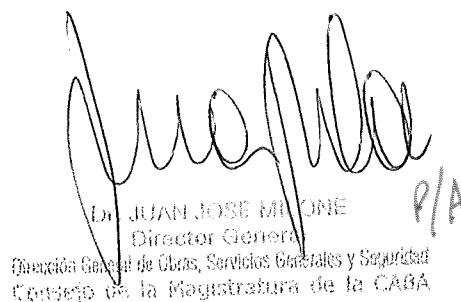 Dr. JUAN JOSE MILONE
P/A
Director General
Dirección General de Obras, Servicios Generales y Seguridad
Consejo de la Magistratura de la CABA